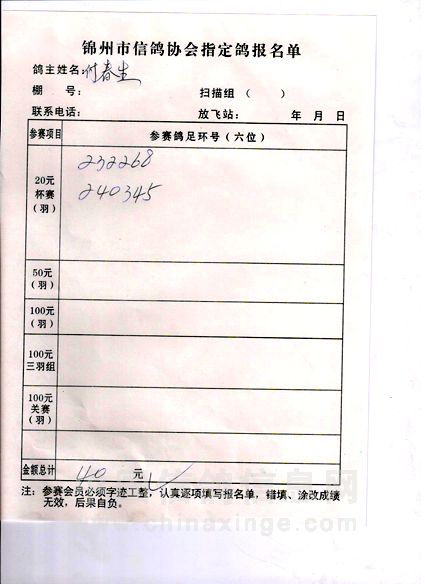 锦州市信鸽协会指定鸽报名单
鸽主姓名:付春生
棚 号: 扫描组 ( )
联系电话: 放飞站: 年 月 日
参赛项目 参赛鸽足环号(六位)
20元
杯赛
(羽)
232268
240345
50元
(羽)
100元
(羽)
100元
三羽组
100元
关赛
(羽)
金额总计 40 元
注: 参赛会员必须字迹工整, 认真逐项填写报名单, 错填、涂改成绩
无效, 后果自负。
信鸽信息网
www.chinaxinge.com